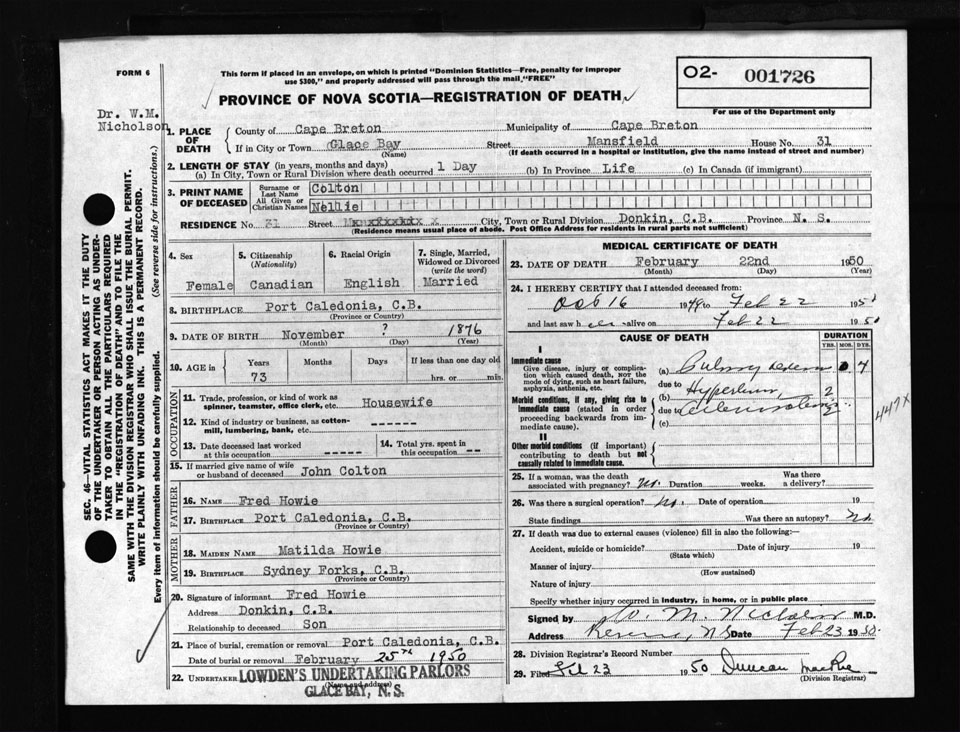 FORM 6
This form if placed in an envelope, on which is printed "Dominion Statistics—Free, penalty for improper
use $300," and properly addressed will pass through the mail, "FREE"
O2- 001726
For use of the Department only
PROVINCE OF NOVA SCOTIA—REGISTRATION OF DEATH
Dr. W.M.
Nicholson
SEC. 46—VITAL STATISTICS ACT MAKES IT THE DUTY
OF THE UNDERTAKER OR PERSON ACTING AS UNDER-
TAKER TO OBTAIN ALL THE PARTICULARS REQUIRED
IN THE "REGISTRATION OF DEATH" AND TO FILE THE
SAME WITH THE DIVISION REGISTRAR WHO SHALL ISSUE THE BURIAL PERMIT.
WRITE PLAINLY WITH UNFADING INK. THIS IS A PERMANENT RECORD.
Every item of information should be carefully supplied. (See reverse side for instructions.)
1. PLACE OF DEATH
County of Cape Breton Municipality of Cape Breton
If in City or Town Glace Bay Street Mansfield House No. 31
(Name) (If death occurred in a hospital or institution, give the name instead of street and number)
2. LENGTH OF STAY (in years, months and days)
(a) In City, Town or Rural Division where death occurred 1 Day (b) In Province Life (c) In Canada (if immigrant)
3. PRINT NAME OF DECEASED
Surname or Last Name Colton
All Given or Christian Names Nellie
RESIDENCE No. 31 Street City, Town or Rural Division Donkin, C.B. Province N. S.
(Residence means usual place of abode. Post Office Address for residents in rural parts not sufficient)
4. Sex
Female
5. Citizenship
(Nationality)
Canadian
6. Racial Origin
English
7. Single, Married,
Widowed or Divorced
(write the word)
Married
8. BIRTHPLACE Port Caledonia, C.B.
(Province or Country)
9. DATE OF BIRTH November ? 1876
(Month) (Day) (Year)
10. AGE in Years Months Days If less than one day old
73 hrs. or min.
OCCUPATION
11. Trade, profession, or kind of work as
spinner, teamster, office clerk, etc. Housewife
12. Kind of industry or business, as cotton-
mill, lumbering, bank, etc. ------
13. Date deceased last worked
at this occupation -----
14. Total yrs. spent in
this occupation ---
15. If married give name of wife
or husband of deceased John Colton
FATHER
16. NAME Fred Howie
17. BIRTHPLACE Port Caledonia, C.B.
(Province or Country)
MOTHER
18. MAIDEN NAME Matilda Howie
19. BIRTHPLACE Sydney Forks, C.B.
(Province or Country)
20. Signature of informant Fred Howie
Address Donkin, C.B.
Relationship to deceased Son
21. Place of burial, cremation or removal Port Caledonia, C.B.
Date of burial or removal February 25th 1950
22. UNDERTAKER LOWDEN'S UNDERTAKING PARLORS
(Name and address)
GLACE BAY, N. S.
MEDICAL CERTIFICATE OF DEATH
23. DATE OF DEATH February 22nd 1950
(Month) (Day) (Year)
24. I HEREBY CERTIFY that I attended deceased from:
Oct 16 to Feb 22 1950
and last saw her alive on Feb 22 1950
CAUSE OF DEATH
DURATION
YRS. MOS. DYS.
I
Immediate cause
Give disease, injury or complica-
tion which caused death, NOT the
mode of dying, such as heart failure,
asphyxia, asthenia, etc.
(a)
due to
Morbid conditions, if any, giving rise to
immediate cause (stated in order
proceeding backwards from im-
mediate cause).
(b) 2
due to
(c)
447X
II
Other morbid conditions (if important)
contributing to death but not
causally related to immediate cause.
25. If a woman, was the death
associated with pregnancy? No. Duration weeks. Was there
a delivery?
26. Was there a surgical operation? No. Date of operation 19
State findings Was there an autopsy? No
27. If death was due to external causes (violence) fill in also the following:—
Accident, suicide or homicide? Date of injury 19
(State which)
Manner of injury
(How sustained)
Nature of injury
Specify whether injury occurred in industry, in home, or in public place
Signed by W. M. Nicholson M.D.
Address N S Date Feb 23 1950
28. Division Registrar's Record Number
29. Filed Feb 23 1950 Duncan MacRae
(Division Registrar)